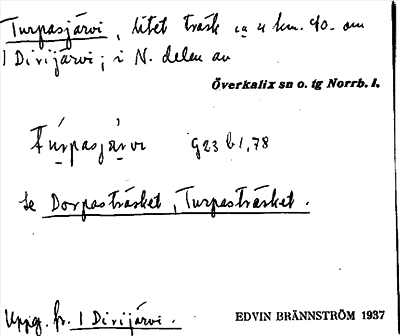 Turpasjärvi, litet träsk ca 4 km. NO. om
I Dirijärvi; i N. delen av
Överkalix sn o. tg Norrb. l.
Tu̱rpasja̱rvi G23 b 1,78
Se Dorpasträsket, Turpasträsket.
Uppg. fr. I Dirijärvi. EDVIN BRÄNNSTRÖM 1937